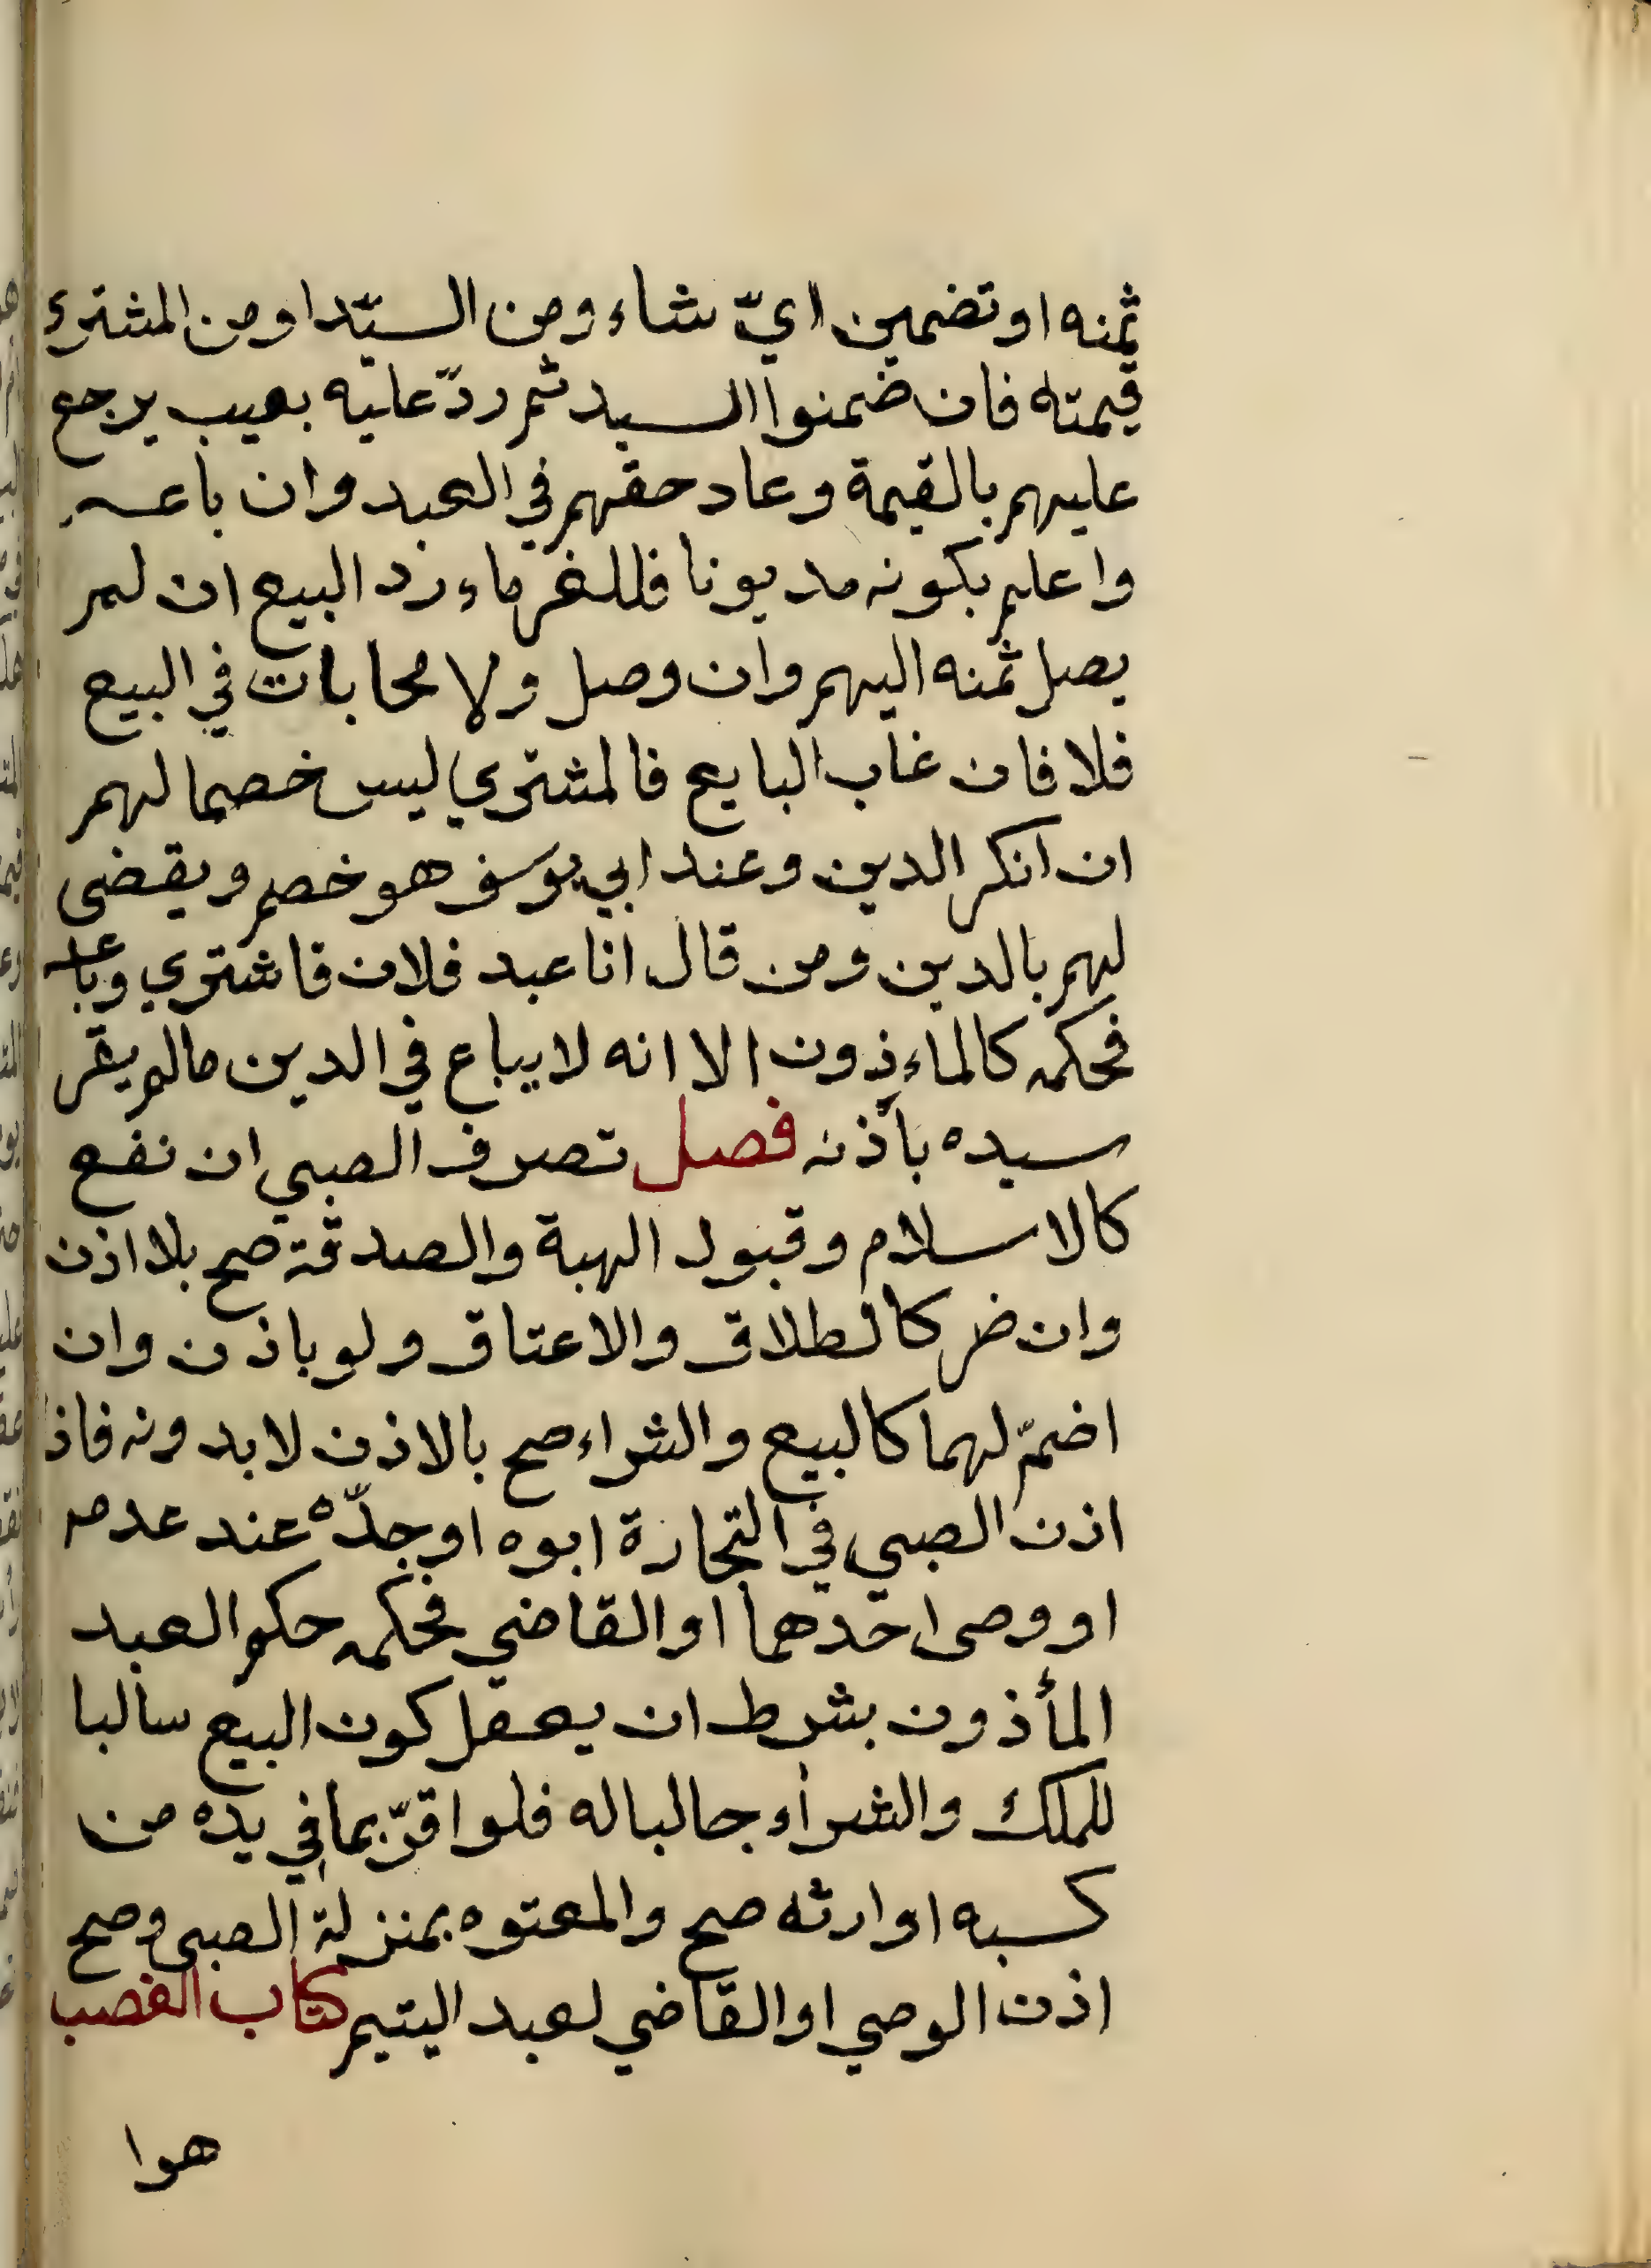 ثمنه او تضمين ايّ شاء ومن السيّد او من المشترى
قيمته فان ضمنوا السيد ثم ردّ عليه بعيب يرجع
عليهم بالقيمة وعاد حقهم في العبد وان باعه
واعلم بكونه مديونا فللغرماء رد البيع ان لم
يصل ثمنه اليهم وان وصل ولا محابات في البيع
فلا فان غاب البايع فالمشتري ليس خصما لهم
ان انكر الدين وعند ابي يوسف هو خصم ويقضى
لهم بالدين ومن قال انا عبد فلان فاشترى وباع
فحكمه كالماءذون الا انه لا يباع في الدين مالم يقر
سيده بأذنه فصل تصرف الصبي ان نفع
كالاسلام وقبول الهبة والصدقة صح بلا اذن
وان ضر كالطلاق والاعتاق ولو باذن وان
اضمّ لهما كالبيع والشراء صح بالاذن لا بدونه فاذا
اذن الصبي في التجارة ابوه او جدّه عند عدمه
او وصى احدهما او القاضي فحكمه حكم العبد
المأذون بشرط ان يعقل كون البيع سالبا
للملك والشراء جالبا له فلو اقرّ بما في يده من
كسبه او ارثه صح والمعتوه بمنزلة الصبى وصح
اذن الوصي او القاضي لعبد اليتيم كتاب الغصب
هوا